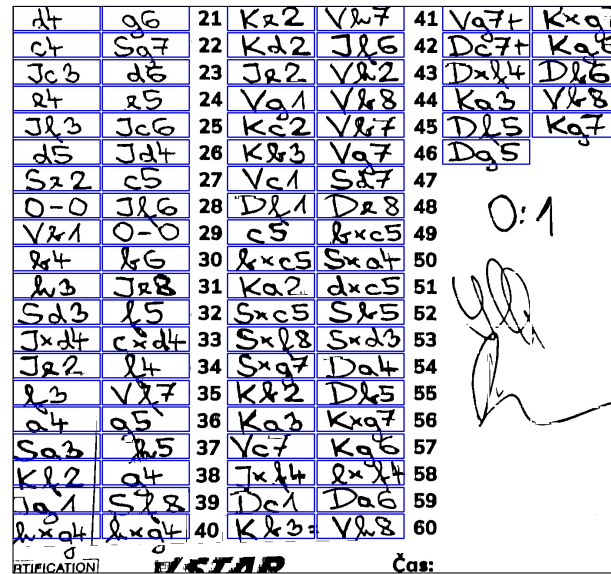 d4 g6 21 Ke2 Vh7 41 Vg7+ Kxg7
c4 Sg7 22 Kd2 Jf6 42 Dc7+ Kg6
Jc3 d6 23 Je2 Vh2 43 Dxf4 Db6
e4 e5 24 Vg1 Vb8 44 Ka3 Vb8
Jf3 Jc6 25 Kc2 Vb7 45 Df5 Kg7
d5 Jd4 26 Kb3 Vg7 46 Dg5
Se2 c5 27 Vc1 Sd7 47
0-0 Jf6 28 Df1 De8 48 0:1
Vb1 0-0 29 c5 bxc5 49
b4 b6 30 bxc5 Sxa4 50
h3 Je8 31 Ka2 dxc5 51
Sd3 f5 32 Sxc5 Sb5 52
Jxd4 cxd4 33 Sxf8 Sxd3 53
Je2 f4 34 Sxg7 Da4 54
f3 Vf7 35 Kb2 Db5 55
a4 g5 36 Ka3 Kxg7 56
Sa3 h5 37 Vc7 Kg6 57
Kf2 g4 38 Jxf4 exf4 58
Jg1 Sf8 39 Dc1 Da6 59
hxg4 hxg4 40 Kb3= Vh8 60
RTIFICATION Čas: